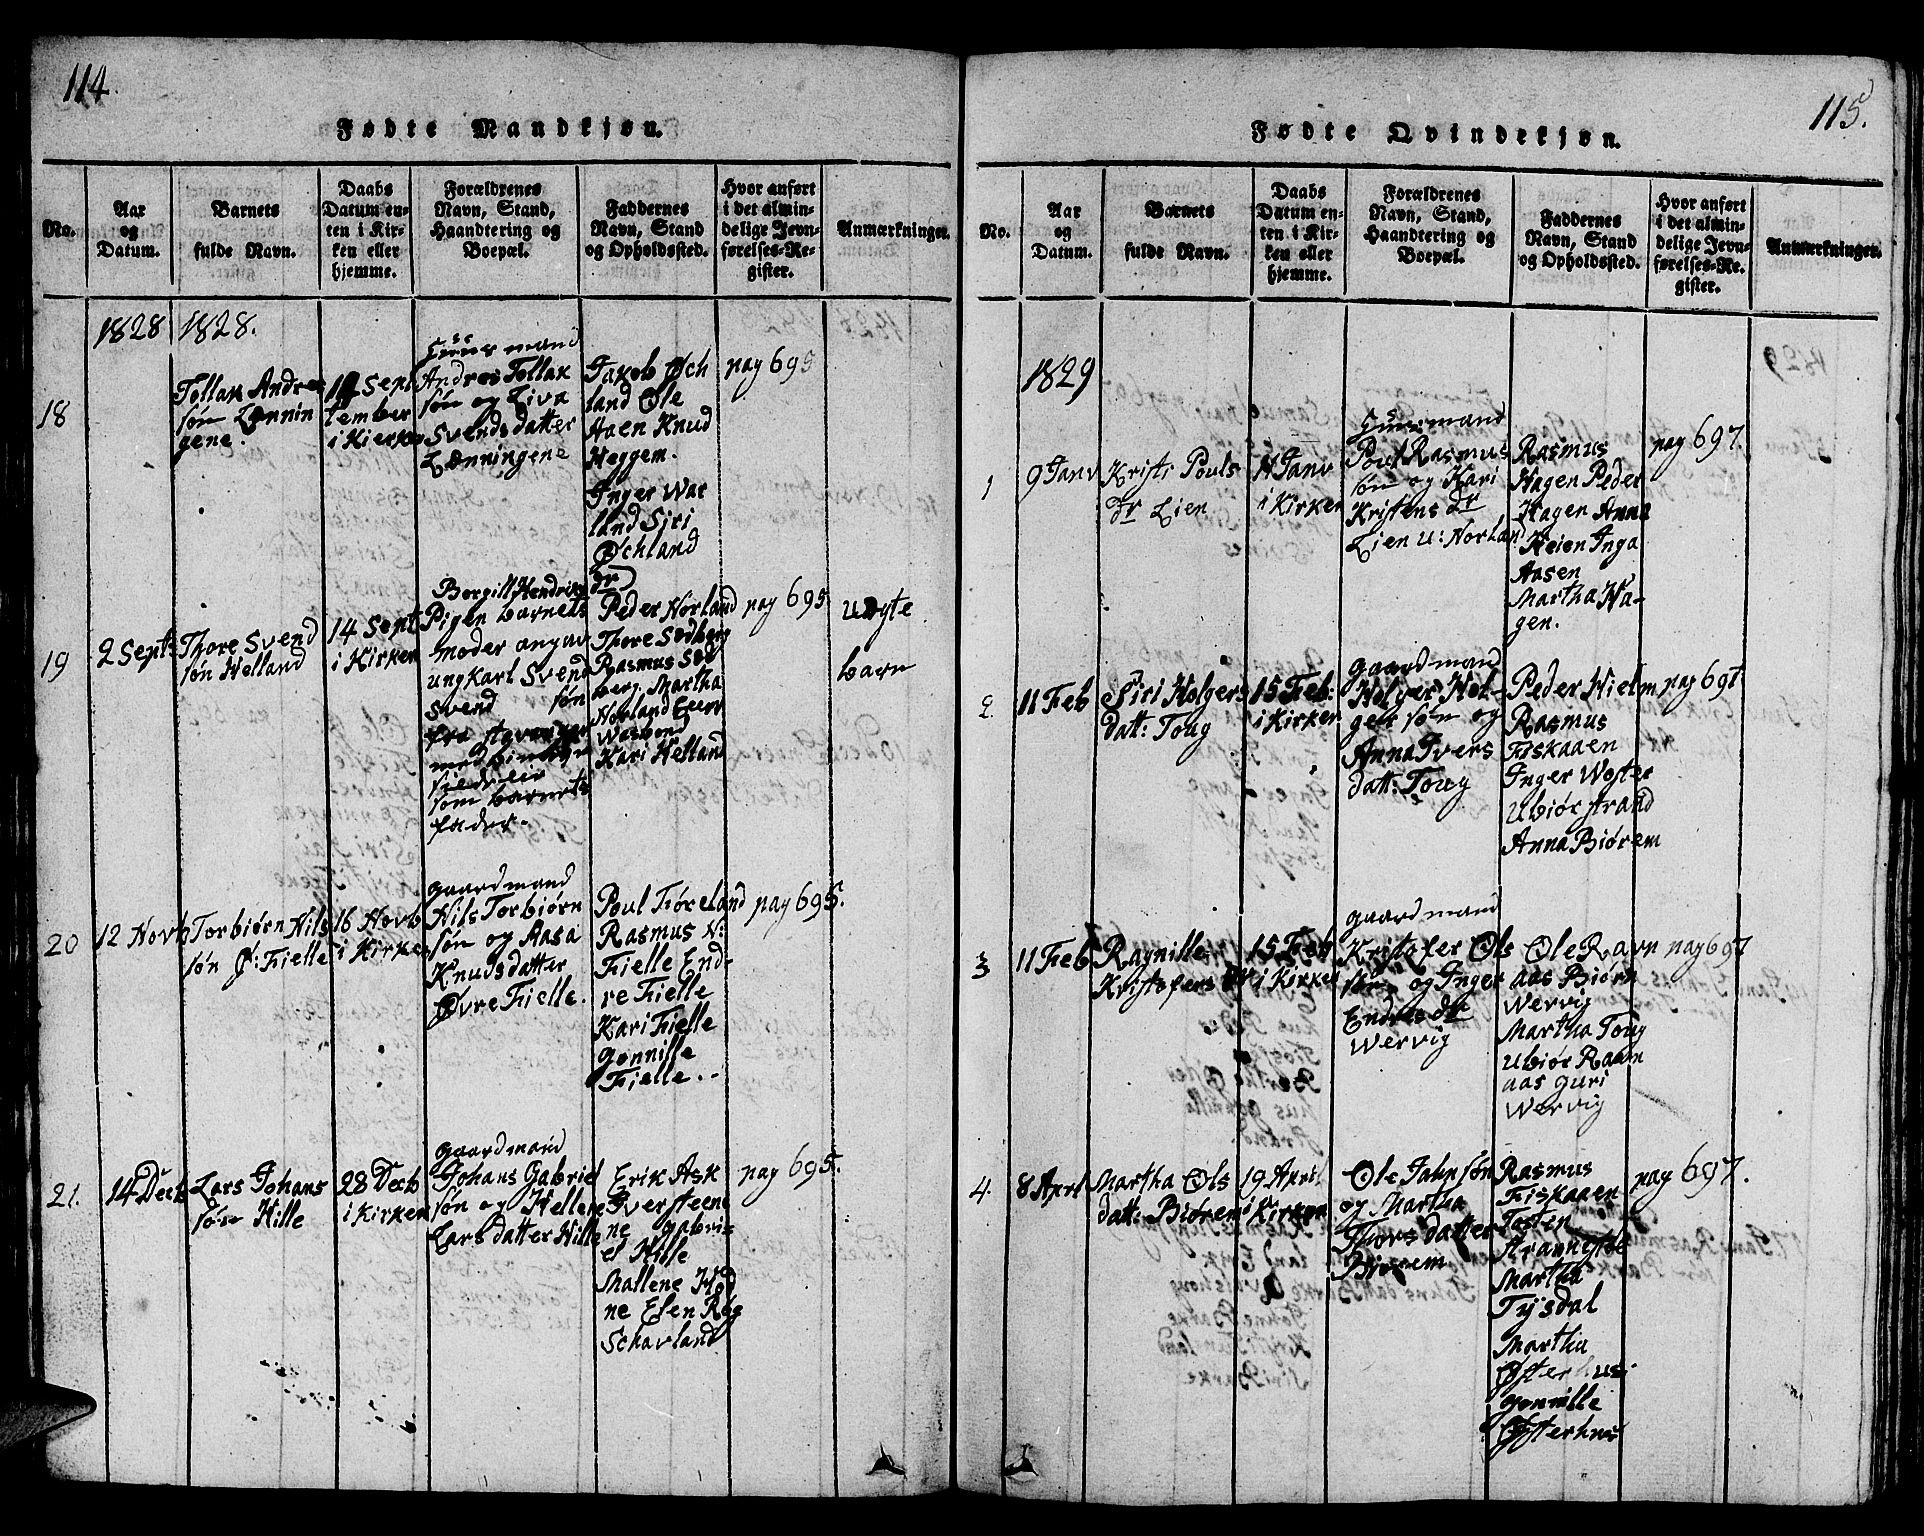 114.
Fødte Mandkjøn.
No.
Aar
og
Datum.
Barnets
fulde Navn.
Daabs
Datum en-
ten i Kir-
ken eller
hjemme.
Forældrenes
Navn, Stand,
Haandtering og
Boepæl.
Faddernes
Navn, Stand
og Opholdssted.
Hvor anført
i det almin-
delige Jevn-
førelses-Re-
gister.
Anmærkninger.
1828
1828.
18
Tollak Andres
søn Lænnin
gene.
14 Sept
tember
i Kierken
Huusmand
Andres Tollak
søn og Liva
Svendsdatter
Lænningene
Jakob Øch
land Ole
Aaen Knud
Heggem.
Inger War
land Siri
Øchland
pag 695
19
2 Septr
Thore Svend
søn Helland
14 Sept
i Kirken
Borgill Hendriks
dr
Pigen barnets
Moder angav
ungkarl Svend
Svend søn
fra stavanger
som barnets
fader.
Peder Norland
Thore Sodberg
Rasmus Sod
berg. Martha
Norland
Kari Helland
pag 695
uægte
barn
20
12 Novb
Torbiørn Nils
søn Ø: Fielle
16 Novb
i Kirken
gaardmand
Nils Torbiørn
søn og Aasa
Knudsdatter
Øvre Fielle.
Poul Fiøreland
Rasmus N:
Fielle End-
re Fielle
Kari Fielle
gonnille
Fielle.
pag 695.
21.
14 Decb
Lars Johans
søn Hille
28 Decb
i Kirken
gaardmand
Johans Gabriel
søn og Hellene
Lars datter Hille
Erik Ask
Iver steene
ne gabri-
el Hille
Mallene Hod
ne Elen Røg
Schavland
pag 695.
115.
Fødte Qvindekjøn.
No.
Aar
og
Datum.
Barnets
fulde Navn.
Daabs
Datum en-
ten i Kir-
ken eller
hjemme.
Forældrenes
Navn, Stand,
Haandtering og
Boepæl.
Faddernes
Navn, Stand
og Opholdssted.
Hvor anført
i det almin-
delige Jevn-
førelses-Re-
gister.
Anmærkninger.
1829
1
9 Janv
Kristi Pouls
dr Lien
11 Janv
i Kirken
Huusmand
Poul Rasmus
søn og Kari
Kristens dr
Lien u: Norland
Rasmus
Hagen Peder
Hagen Anna
Heien Inga
Aasen
Martha Ha-
gen.
pag 697.
2
11 Feb
Siri Holgers
datt: Toug
15 Feb:
i Kirken
gaardmand
Holger Hol-
ger søn og
Anna Ivers
datt: Toug
Peder Hielm
Rasmus
Fiskaaen
Inger Woster
Ubiør strand
Anna Biørem
pag 697
3
11 Feb
Ragnille
Kristofers dr
15 Feb
i Kirken
gaardmand
Kristofer Ols
søn og Inger
Endres dr
Wervig
Ole Ravn
aas Biørn
Wervig
Martha Toug
Ubiør Raavn
aas guri
Wervig
pag 697
4.
8 Aprl
Martha Ols
datt: Biørem
19 April
i Kirken
Ole Jahnsøn
og Martha
Thorsdatter
Biørem
Rasmus
Fiskaaen
Tosten
Martha
Tysdal
Martha
Østerhus
gonnille
Østerhus
pag 697.